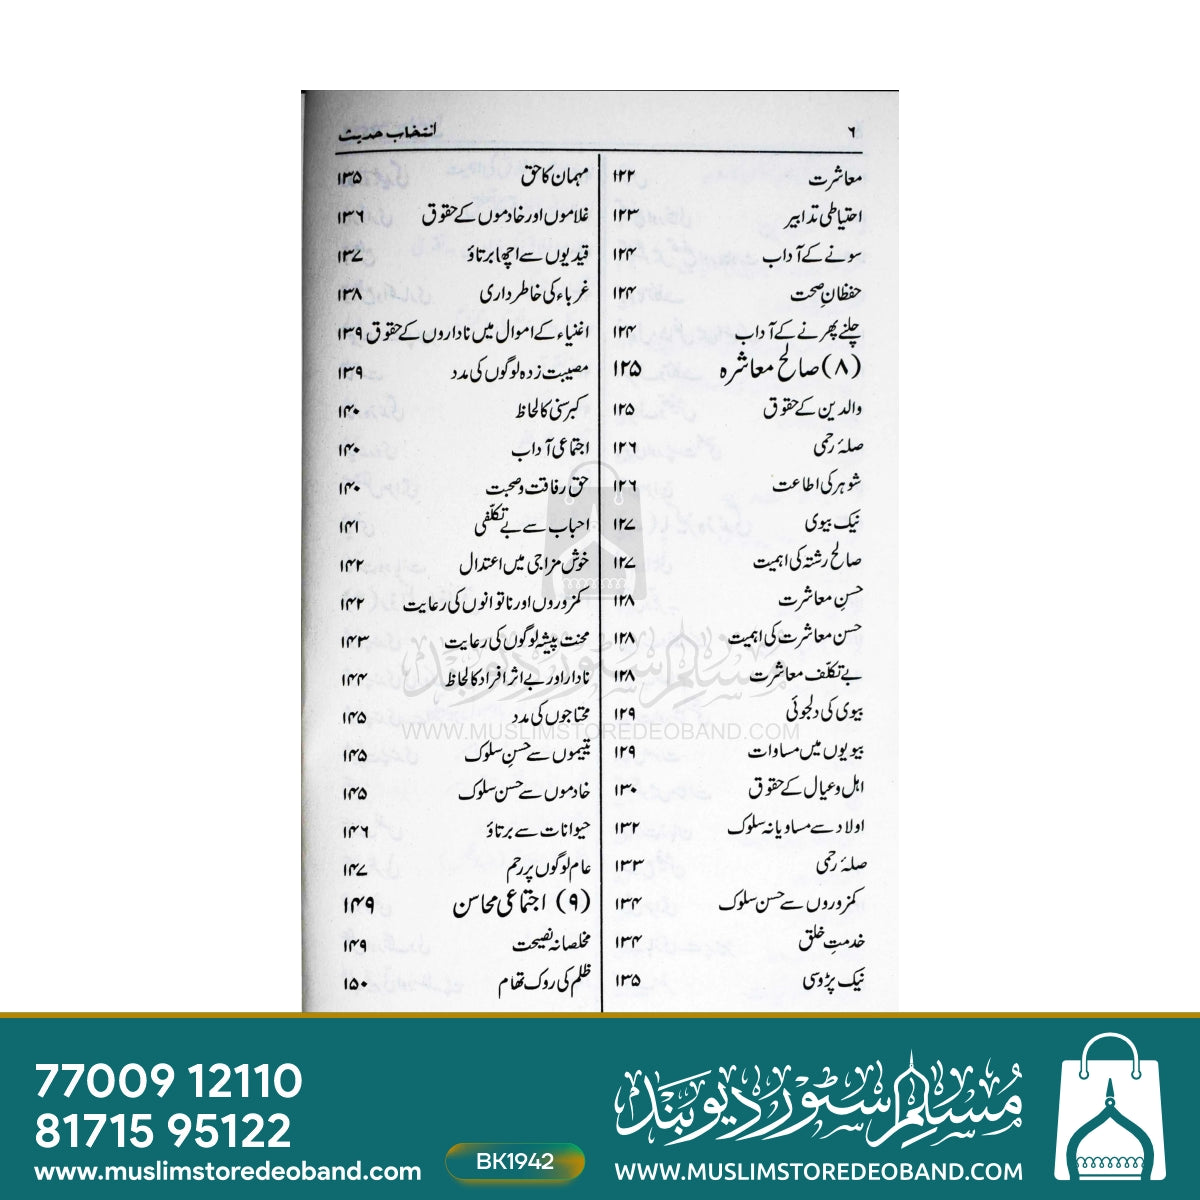 ۶
انتخاب حدیث
معاشرت ۱۲۲
احتیاطی تدابیر ۱۲۳
سونے کے آداب ۱۲۴
حفظانِ صحت ۱۲۴
چلنے پھرنے کے آداب ۱۲۴
(۸) صالح معاشرہ ۱۲۵
والدین کے حقوق ۱۲۵
صلۂ رحمی ۱۲۶
شوہر کی اطاعت ۱۲۶
نیک بیوی ۱۲۷
صالح رشتہ کی اہمیت ۱۲۷
حسنِ معاشرت ۱۲۸
حسن معاشرت کی اہمیت ۱۲۸
بے تکلّف معاشرت ۱۲۸
بیوی کی دلجوئی ۱۲۹
بیویوں میں مساوات ۱۲۹
اہل و عیال کے حقوق ۱۳۰
اولاد سے مساویانہ سلوک ۱۳۲
صلۂ رحمی ۱۳۳
کمزوروں سے حسن سلوک ۱۳۴
خدمتِ خلق ۱۳۴
نیک پڑوسی ۱۳۵
مہمان کا حق ۱۳۵
غلاموں اور خادموں کے حقوق ۱۳۶
قیدیوں سے اچھا برتاؤ ۱۳۷
غرباء کی خاطر داری ۱۳۸
اغنیاء کے اموال میں ناداروں کے حقوق ۱۳۹
مصیبت زدہ لوگوں کی مدد ۱۳۹
کبر سنی کا لحاظ ۱۴۰
اجتماعی آداب ۱۴۰
حق رفاقت و صحبت ۱۴۰
احباب سے بے تکلّفی ۱۴۱
خوش مزاجی میں اعتدال ۱۴۲
کمزوروں اور ناتوانوں کی رعایت ۱۴۲
محنت پیشہ لوگوں کی رعایت ۱۴۳
نادار اور بے اثر افراد کا لحاظ ۱۴۴
محتاجوں کی مدد ۱۴۵
یتیموں سے حسنِ سلوک ۱۴۵
خادموں سے حسن سلوک ۱۴۵
حیوانات سے برتاؤ ۱۴۶
عام لوگوں پر رحم ۱۴۷
(۹) اجتماعی محاسن ۱۴۹
مخلصانہ نصیحت ۱۴۹
ظلم کی روک تھام ۱۵۰
مسلم سٹور دیوبند
WWW.MUSLIMSTOREDEOBAND.COM
77009 12110
81715 95122
www.muslimstoredeoband.com
BK1942
مُسلم سٹور دیوبند
WWW.MUSLIMSTOREDEOBAND.COM